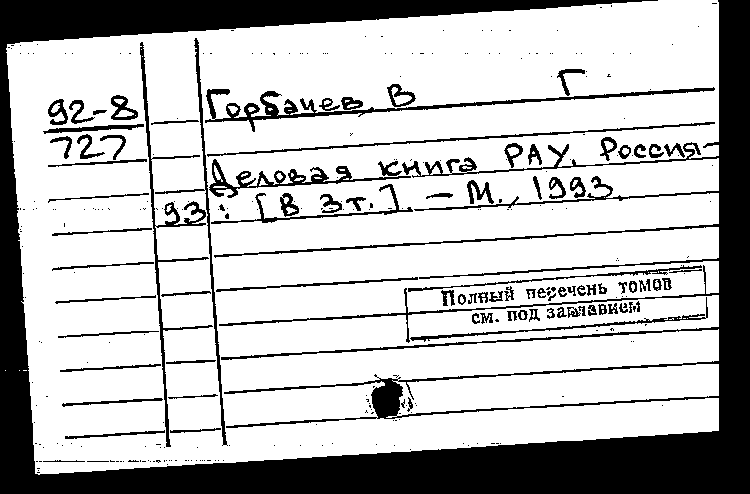 92-8
727
Горбачев, В Г
Деловая книга РАУ. Россия-
93 : [В 3 т.]. - М., 1993.
Полный перечень томов
см. под заглавием